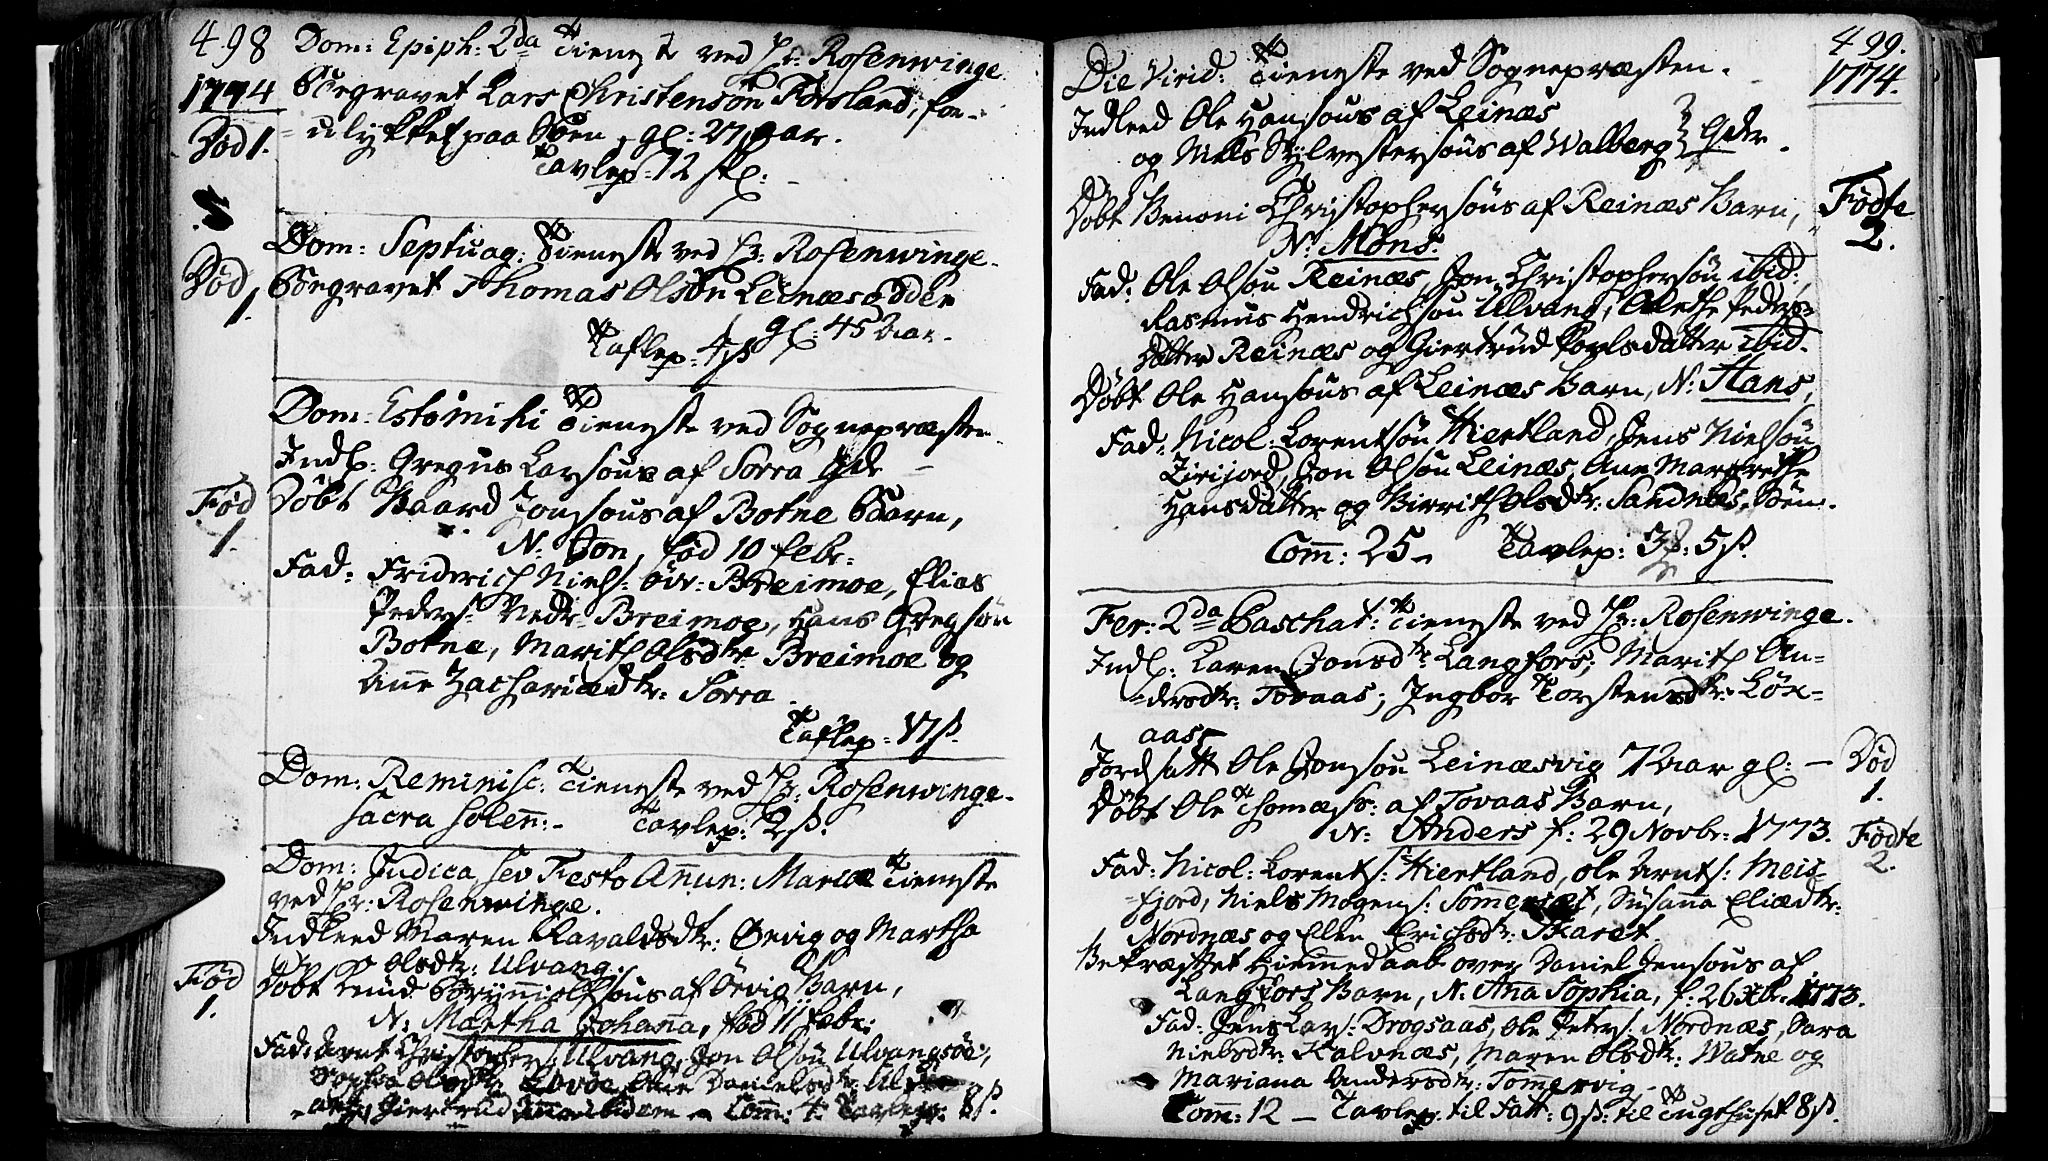 498
1774
Dom: Epiph: 2da Tieneste ved Hr: Rosenwinge
Begravet Lars Christensøn Forsland, for-
ulykket paa Søen, gl: 27 aar.
Død 1.
Tavlep: 12 sk:
Dom: Septuag: Tieneste ved Hr: Rosenwinge.
Død 1.
Begravet Thomas Olsøn Leinæsødden
gl: 45 Aar.
Taflep: 4 ß
Dom: Estomihi Tieneste ved Sognepræsten.
Indl: Gregus Larsøns af Sorra Qde
Fød 1.
Døbt Baard Jonsøns af Botne Barn,
N: Jon, fød 10 Febr:
Fad: Friderich Niels: Øvr: Breimoe, Elias
Peders: Nedr: Breimoe, Hans Gregsøn
Botne, Marith Olsdtr. Breimoe og
Ane Zachariædtr: Sorra.
Taflep: 17 ß.
Dom: Reminisc: Tieneste ved Hr: Rosenwinge.
Sacra Solenn: - Tavlep: 2 ß.
Dom: Judica, sev Festo Anun: Mariæ Tieneste
ved Hr: Rosenwinge.
Indleed Maren Ravaldsdtr: Ørvig og Martha
Olsdtr: Ulvang.
Fød 1.
Døbt Knud Brynnielsøns af Ørvig Barn,
N: Martha Johanna, fød 11 Febr:
Fad: Arnt Christophers: Ulvang, Jon Olsøn Ulvangsøe,
Olsdtr Danielsdtr: Ulv-
ang, Giertrud ibidem - Comm: Tavlep: 8 ß.
499.
1774.
Die Virid: Tieneste ved Sognepræsten.
Indleed Ole Hansøns af Leinæs
og Niels Sylvestersøns af Walberg } Qdr.
Døbt Benoni Christophersøns af Reinæs Barn,
Fødte 2.
N: Mons.
Fad: Ole Olsøn Reinæs, Jon Christophersøn ibid:
Rasmus Hendrichsøn Ulvang, Aleth Peders-
datter Reinæs og Giertrud Povlsdatter ibid.
Døbt Ole Hansøns af Leinæs Barn, N: Hans,
Fad: Nicol: Lorentsøn Hiertland, Jens Nielsøn
Zirijord, Jon Olsøn Leinæs, Ane Margrethe
Hansdatter og Birrith Olsdtr: Sandnæs-Søen.
Comm: 25 - Tavlep: 5 ß.
Fer: 2da Paschat: Tieneste ved Hr: Rosenwinge.
Indl: Karen Jonsdtr: Langfors; Marith An-
dersdtr: Tovaas; Ingbor Torstensdtr: Løx-
aas
Jordsatt Ole Jonsøn Leinæsvig 7 Aar gl: -
Død 1.
Døbt Ole Thomæss: af Tovaas Barn,
N: Anders f: 29 Novbr: 1773.
Fødte 2.
Fad: Nicol: Lorents: Hiertland, Ole Arnts: Meis-
fjord, Niels Mogens: Sommerset, Susanna Eliædtr:
Nordnæs og Ellen Erichsdtr: Skaret
Bekræftet Hiemmedaab over Daniel Jensøns af
Langfors Barn, N: Ana Sophia, f: 26 Xbr: 1773.
Fad: Jens Lars: Drogsaas, Ole Peters: Nordnæs, Sara
Nielsdtr: Kalvnæs, Maren Olsdtr: Watne og
Mariana Andersdtr: Tommervig -
Comm: 12 - Tavlep: til Fatt: 9 ß: til Tugthuset 8 ß.